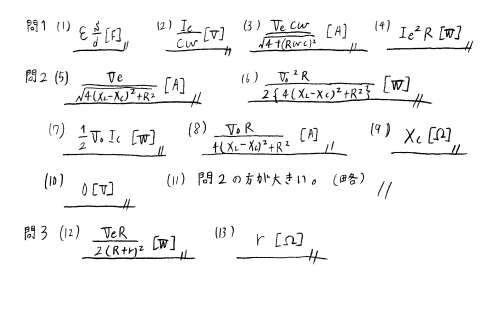 問1 (1) ε S/d [F] (2) Ie/Cω [V] (3) VeCω/√4+(RωC)² [A] (4) Ie²R [W]
問2 (5) Ve/√4(XL-XC)²+R² [A] (6) V₀²R/2{4(XL-XC)²+R²} [W]
(7) 1/2 V₀Ic [W] (8) V₀R/4(XL-XC)²+R² [A] (9) Xc [Ω]
(10) 0 [V] (11) 問2の方が大きい。(略)
問3 (12) VeR/2(R+r)² [W] (13) r [Ω]